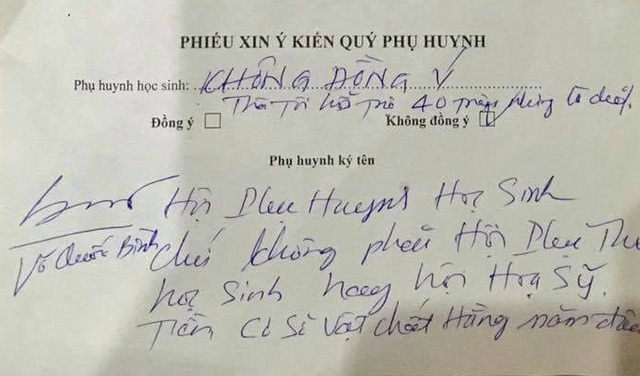 PHIẾU XIN Ý KIẾN QUÝ PHỤ HUYNH
Phụ huynh học sinh: KHÔNG ĐỒNG Ý
Tha Tôi hỗ trợ 40 triệu
Đồng ý ☐ Không đồng ý ☑
Phụ huynh ký tên
Hội Phụ Huynh Học Sinh
Võ Quốc Bình
chứ không phải Hội Phụ Thu
học Sinh hay hội Họa Sỹ.
Tiền Cơ Sở Vật chất Hàng năm đâu